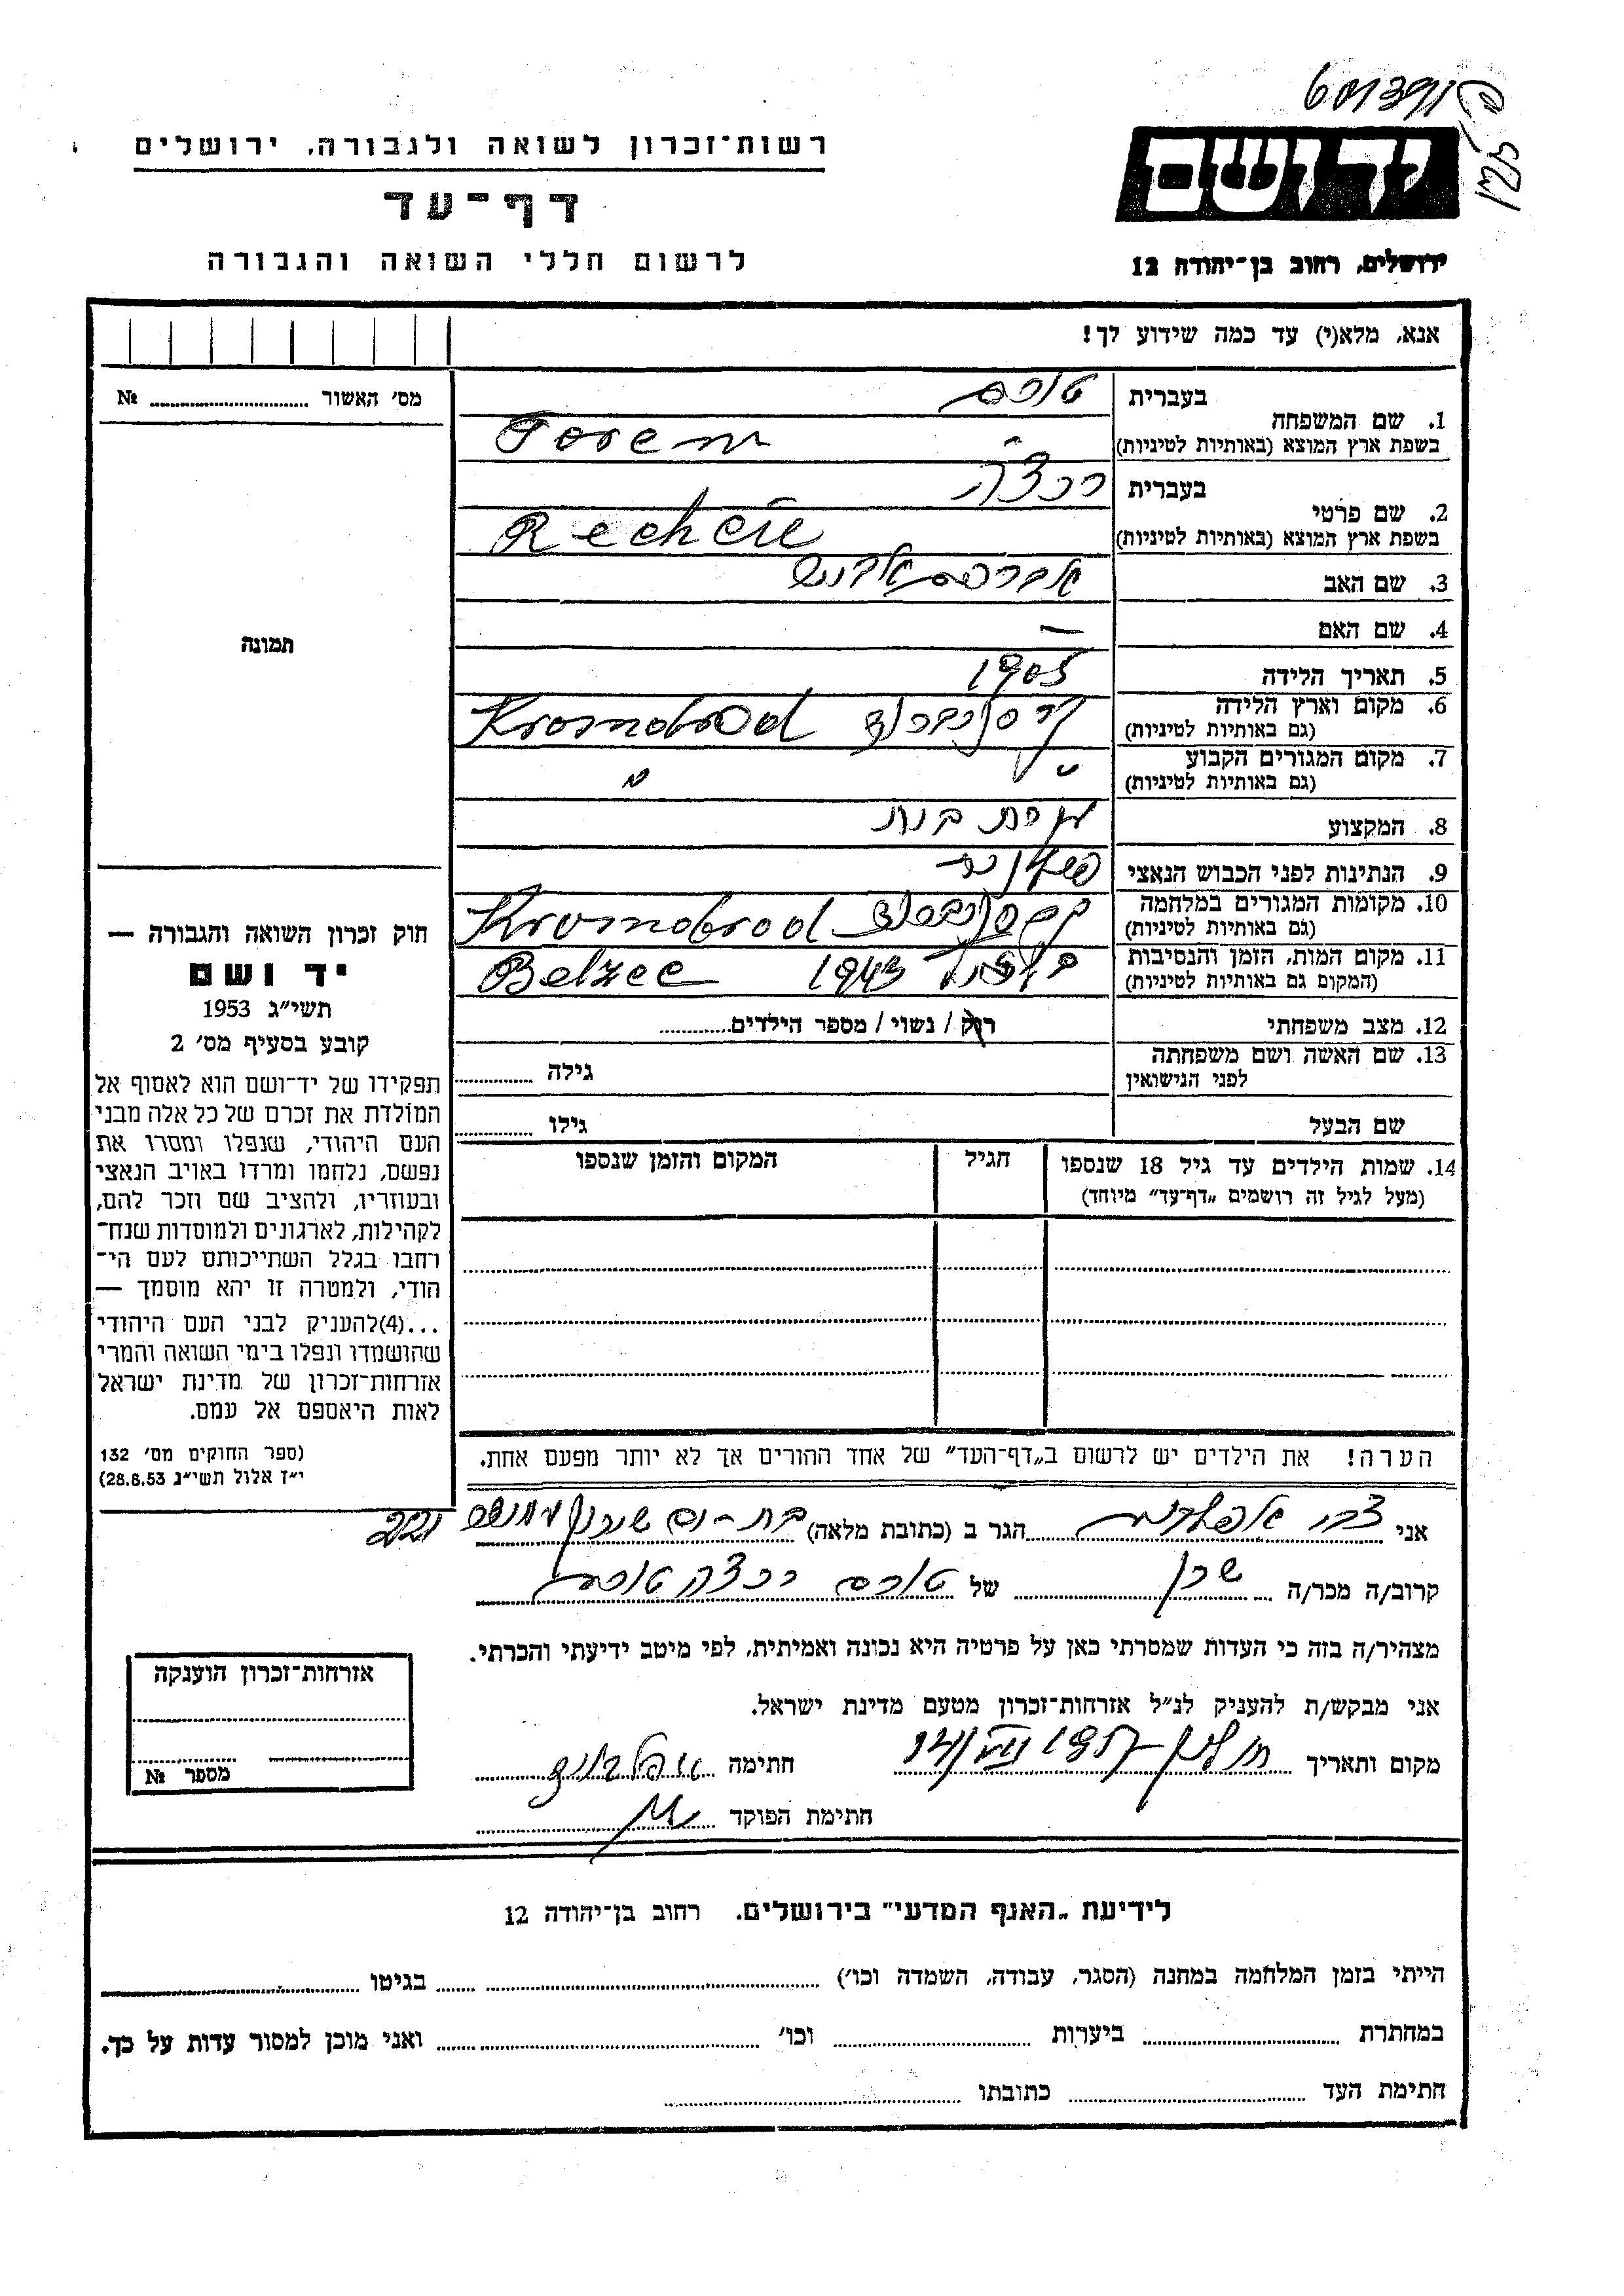 6013911
רשות־זכרון לשואה ולגבורה, ירושלים
יד ושם
דף־עד
לרשום חללי השואה והגבורה
ירושלים, רחוב בן־יהודה 12
אנא, מלא(י) עד כמה שידוע לך!
מס׳ האשור № 
בעברית טורם
1. שם המשפחה
בשפת ארץ המוצא (באותיות לטיניות) Torem
בעברית רכצה
2. שם פרטי
בשפת ארץ המוצא (באותיות לטיניות)
3. שם האב אברהם
4. שם האם —
5. תאריך הלידה 1905
6. מקום וארץ הלידה
(גם באותיות לטיניות) Krosnobrod
7. מקום המגורים הקבוע
(גם באותיות לטיניות) " "
8. המקצוע עקרת בית
9. הנתינות לפני הכבוש הנאצי פולנית
10. מקומות המגורים במלחמה
(גם באותיות לטיניות) Krosnobrod
11. מקום המות, הזמן והנסיבות
(המקום גם באותיות לטיניות) 1943 Belzec
12. מצב משפחתי רוק / נשוי / מספר הילדים
13. שם האשה ושם משפחתה
לפני הנישואין גילה
שם הבעל גילו
14. שמות הילדים עד גיל 18 שנספו הגיל המקום והזמן שנספו
(מעל לגיל זה רושמים „דף־עד” מיוחד)
הערה! את הילדים יש לרשום ב„דף־העד” של אחד ההורים אך לא יותר מפעם אחת.
תמונה
חוק זכרון השואה והגבורה —
יד ושם
תשי״ג 1953
קובע בסעיף מס׳ 2
תפקידו של יד־ושם הוא לאסוף אל
המולדת את זכרם של כל אלה מבני
העם היהודי, שנפלו ומסרו את
נפשם, נלחמו ומרדו באויב הנאצי
ובעוזריו, ולהציב שם וזכר להם,
לקהילות, לארגונים ולמוסדות שנח־
רחבו בגלל השתייכותם לעם הי־
הודי, ולמטרה זו יהא מוסמך —
...(4)להעניק לבני העם היהודי
שהושמדו ונפלו בימי השואה והמרי
אזרחות־זכרון של מדינת ישראל
לאות היאספם אל עמם.
(ספר החוקים מס׳ 132
י״ז אלול תשי״ג 28.8.53)
אני צבי הגר ב (כתובת מלאה) בת־ים שיכון
קרוב/ה מכר/ה שכן של טורם רכצה
מצהיר/ה בזה כי העדות שמסרתי כאן על פרטיה היא נכונה ואמיתית, לפי מיטב ידיעתי והכרתי.
אני מבקש/ת להעניק לנ״ל אזרחות־זכרון מטעם מדינת ישראל.
מקום ותאריך חולון 14/VII 1957 חתימה
חתימת הפוקד
אזרחות־זכרון הוענקה
מספר №
לידיעת „האגף המדעי” בירושלים. רחוב בן־יהודה 12
הייתי בזמן המלחמה במחנה (הסגר, עבודה, השמדה וכו׳) בגיטו
במחתרת ביערות וכו׳ ואני מוכן למסור עדות על כך.
חתימת העד כתובתו